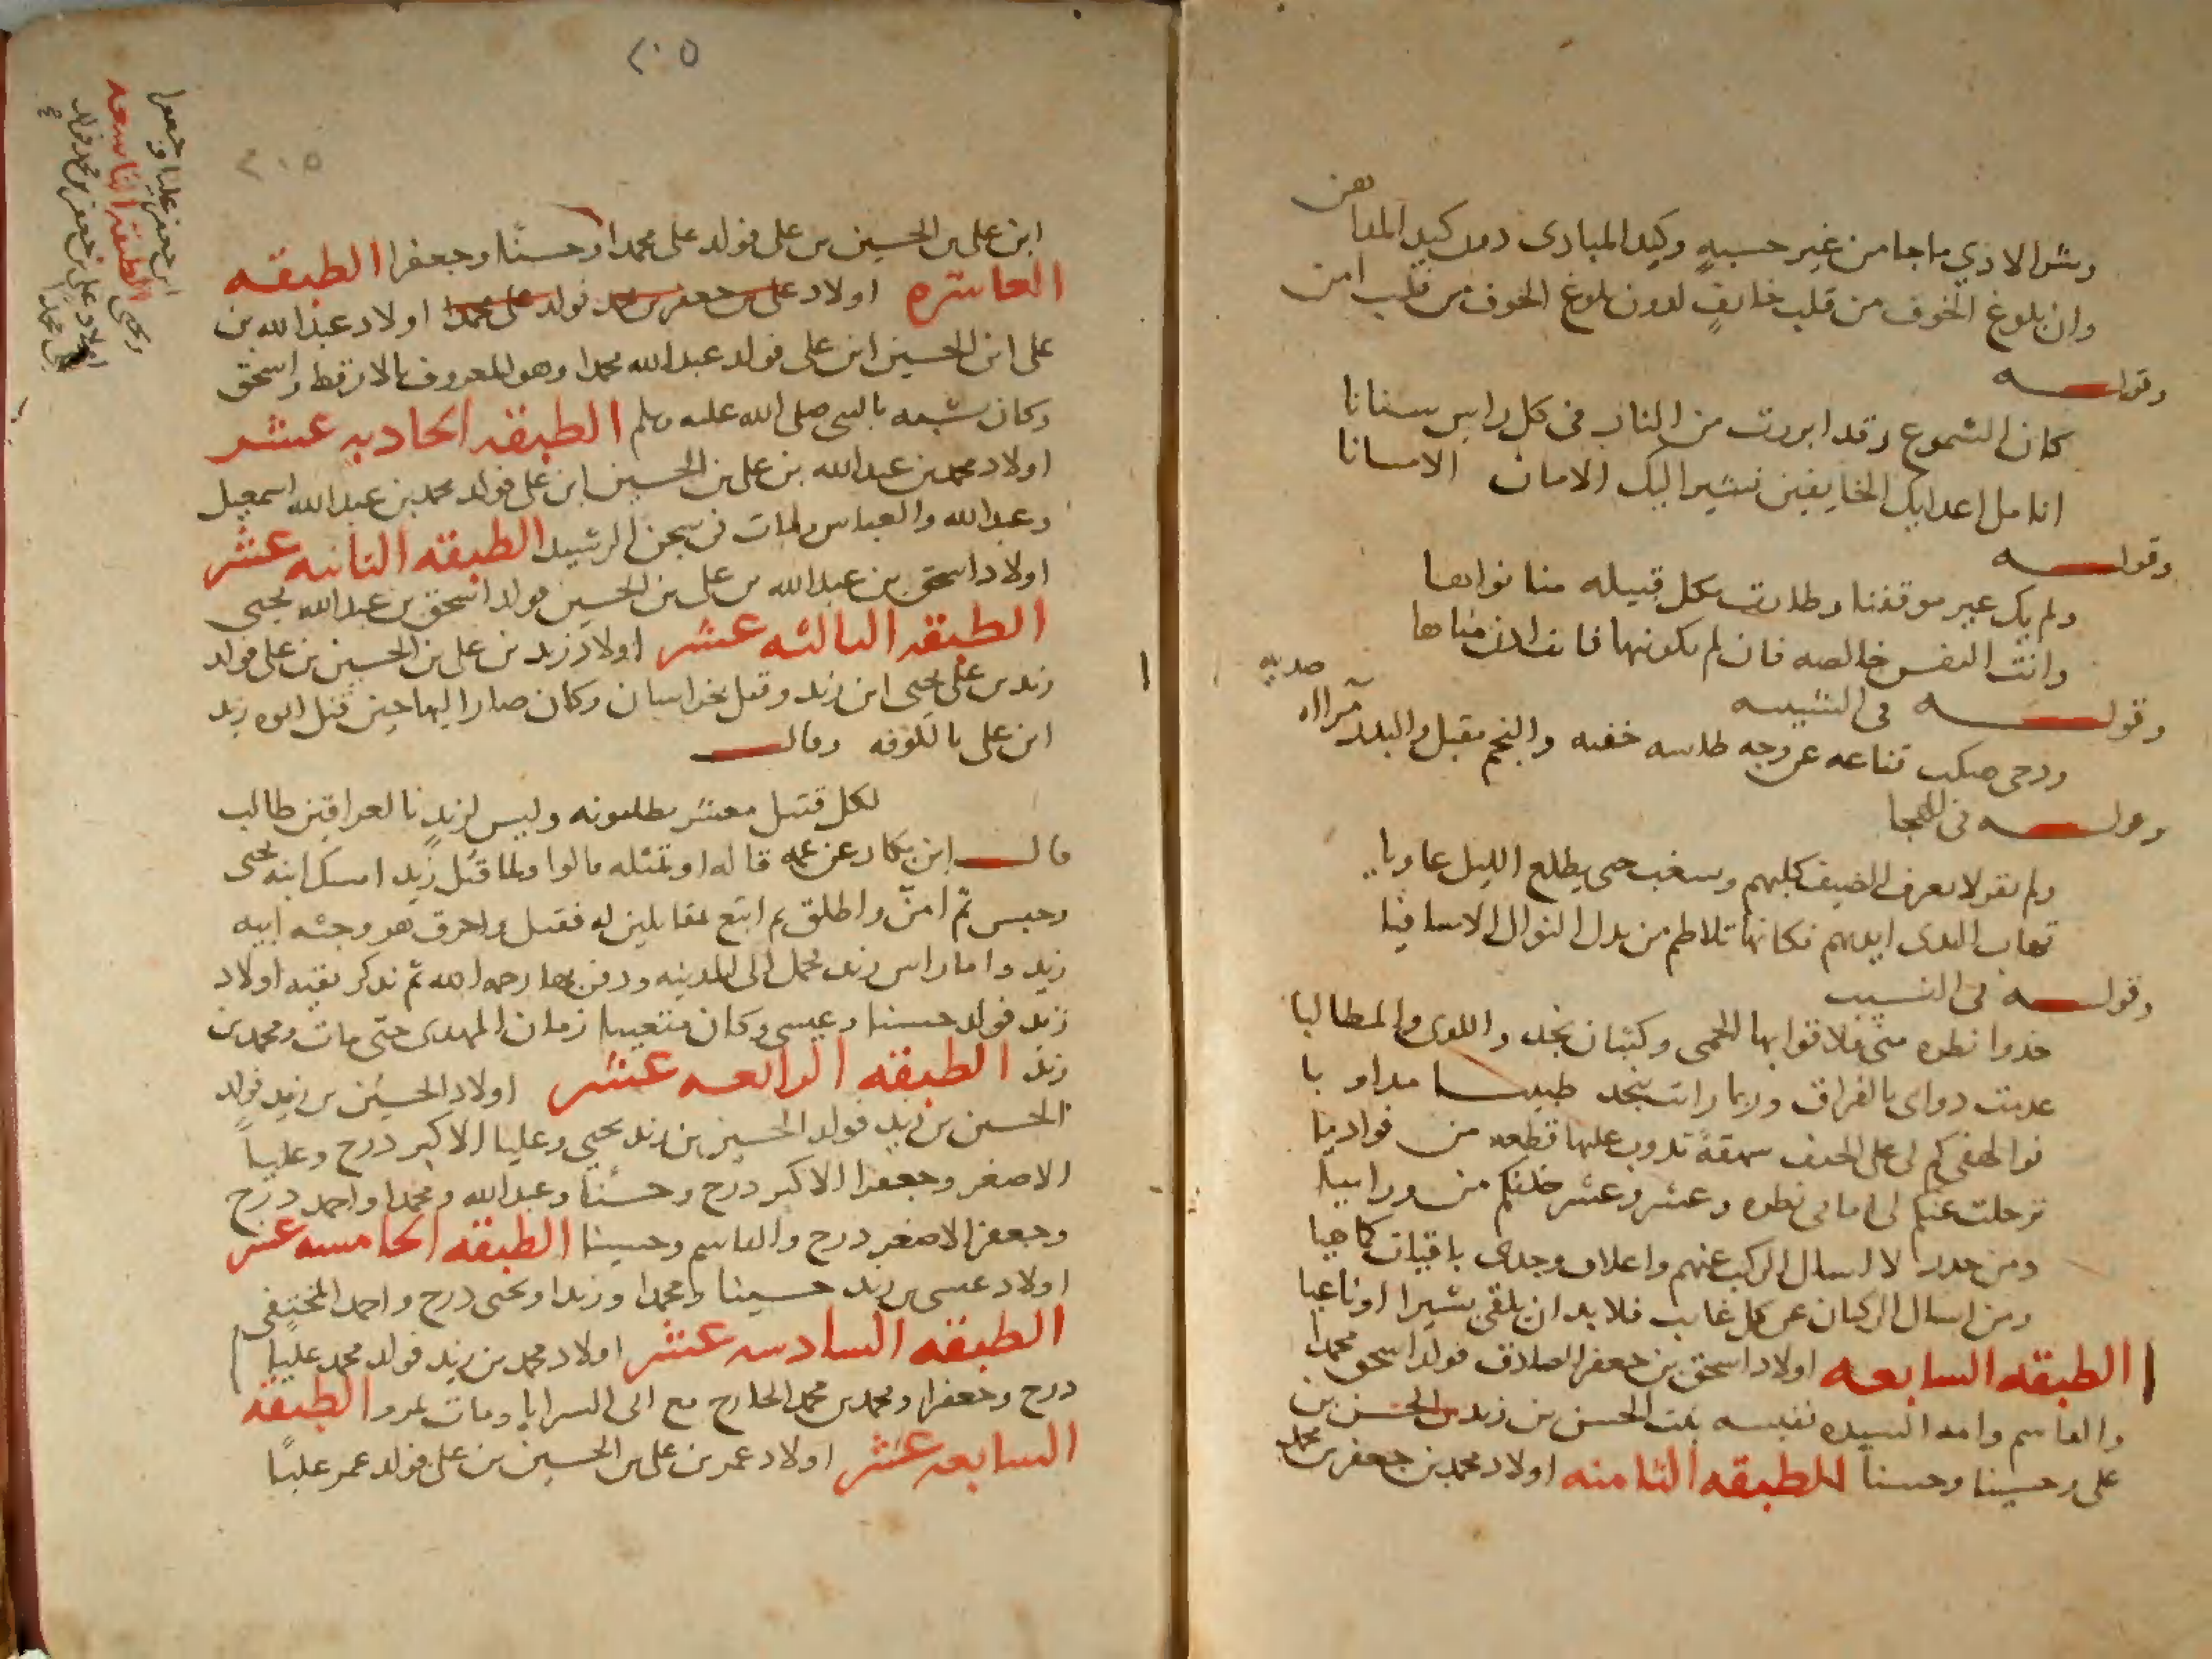 وشر الاذي ما جا من غير حسبه وكيد المبادى دون كيد المداهن
وان بلوغ الخوف من قلب خايف لدون بلوغ الخوف من قلب امن
وقوله
كان الشموع وقد ابرزت من النار فى كل راس سنانا
انامل اعدايك الخايفين تشير اليك الامان الامانا
وقوله
ولم يك غير موقفنا وطارت بكل قبيله منا نواها
وانت النفس خالصه فان لم تكونيها فانت اذن مناها
وقوله فى التشبيه
ودجى قناعه عن وجه خفيه والنجم مقبل والبدر
وقوله فى الهجا
كلبهم حتى يطلع الليل عاويا
ايديهم فكانها تلاطم من بذل النوال الاسافيا
وقوله فى النسيب
خذوا نظره منى فلاقوا بها الحمى وكثبان نجد واللوى والمطاليا
عدمت دواى بالفراق وربما رايت بنجد طبيبا مداويا
فوا لهفى كم لى على الخيف شهقة تذوب عليها قطعه من فواديا
ترحلت عنكم لى امامى نظره وعشر وعشر خلفكم من وراييا
ومن حذر لا اسال الركب عنهم واعلاق وجدى باقيات كما هيا
ومن اسال الركبان عن كل غايب فلا بد ان يلقى بشيرا او ناعيا
الطبقه السابعه اولاد اسحق بن جعفر الصادق فولد اسحق محمدا
والقاسم وامه السيده نفيسه بنت الحسن بن زيد بن الحسن بن
على وحسينا وحسنا الطبقه الثامنه اولاد محمد بن جعفر بن محمد
٢٠٥
٢٠٥
ابن على بن الحسين بن على فولد على محمدا وحسنا وجعفرا الطبقه
العاشره اولاد على بن جعفر بن محمد فولد على محمدا اولاد عبد الله بن
على ابن الحسين ابن على فولد عبد الله محمدا وهو المعروف بالارقط واسحق
وكان شبيه بالنبى صلى الله عليه وسلم الطبقه الحاديه عشر
اولاد محمد بن عبد الله بن على بن الحسين ابن على فولد محمد بن عبد الله اسمعيل
وعبد الله والعباس ومات فى سجن الرشيد الطبقه الثانيه عشر
اولاد اسحق بن عبد الله بن على بن الحسين فولد اسحق بن عبد الله يحيى
الطبقه الثالثه عشر اولاد زيد بن على بن الحسين بن على فولد
زيد بن على يحيى ابن زيد وقتل بخراسان وكان صار اليها حين قتل ابوه زيد
ابن على بالكوفه وقال
لكل قتيل معشر يطلبونه وليس لزيد بالعراقين طالب
قال ابن بكار عن عمه قاله او تمثله قالوا ولما قتل زيد امسك ابنه يحيى
وحبس ثم امن واطلق ثم له فقتل واحرق هو وجثه ابيه
زيد واما راس زيد فحمل الى المدينه ودفن بها رحمه الله ثم نذكر بقيه اولاد
زيد فولد حسينا وعيسى وكان متغيبا زمان المهدى حتى مات ومحمد بن
زيد الطبقه الرابعه عشر اولاد الحسين بن زيد فولد
الحسين بن زيد فولد الحسين بن زيد يحيى وعليا الاكبر درج وعليا
الاصغر وجعفرا الاكبر درج وحسنا وعبد الله ومحمدا واحمد درج
وجعفر الاصغر درج والقاسم وحسينا الطبقه الخامسه عشر
اولاد عيسى بن زيد حسينا ومحمدا وزيدا ويحيى درج واحمد المختفى
الطبقه السادسه عشر اولاد محمد بن زيد فولد محمد عليا
درج وجعفرا ومحمد بن محمد الخارج مع ابى السرايا ومات بمرو الطبقه
السابعه عشر اولاد عمر بن على بن الحسين بن على فولد عمر عليا
ابن جعفر عليا وجعفرا
ويحيى الطبقه التاسعه
اولاد على بن جعفر بن محمد فولد
على محمدا